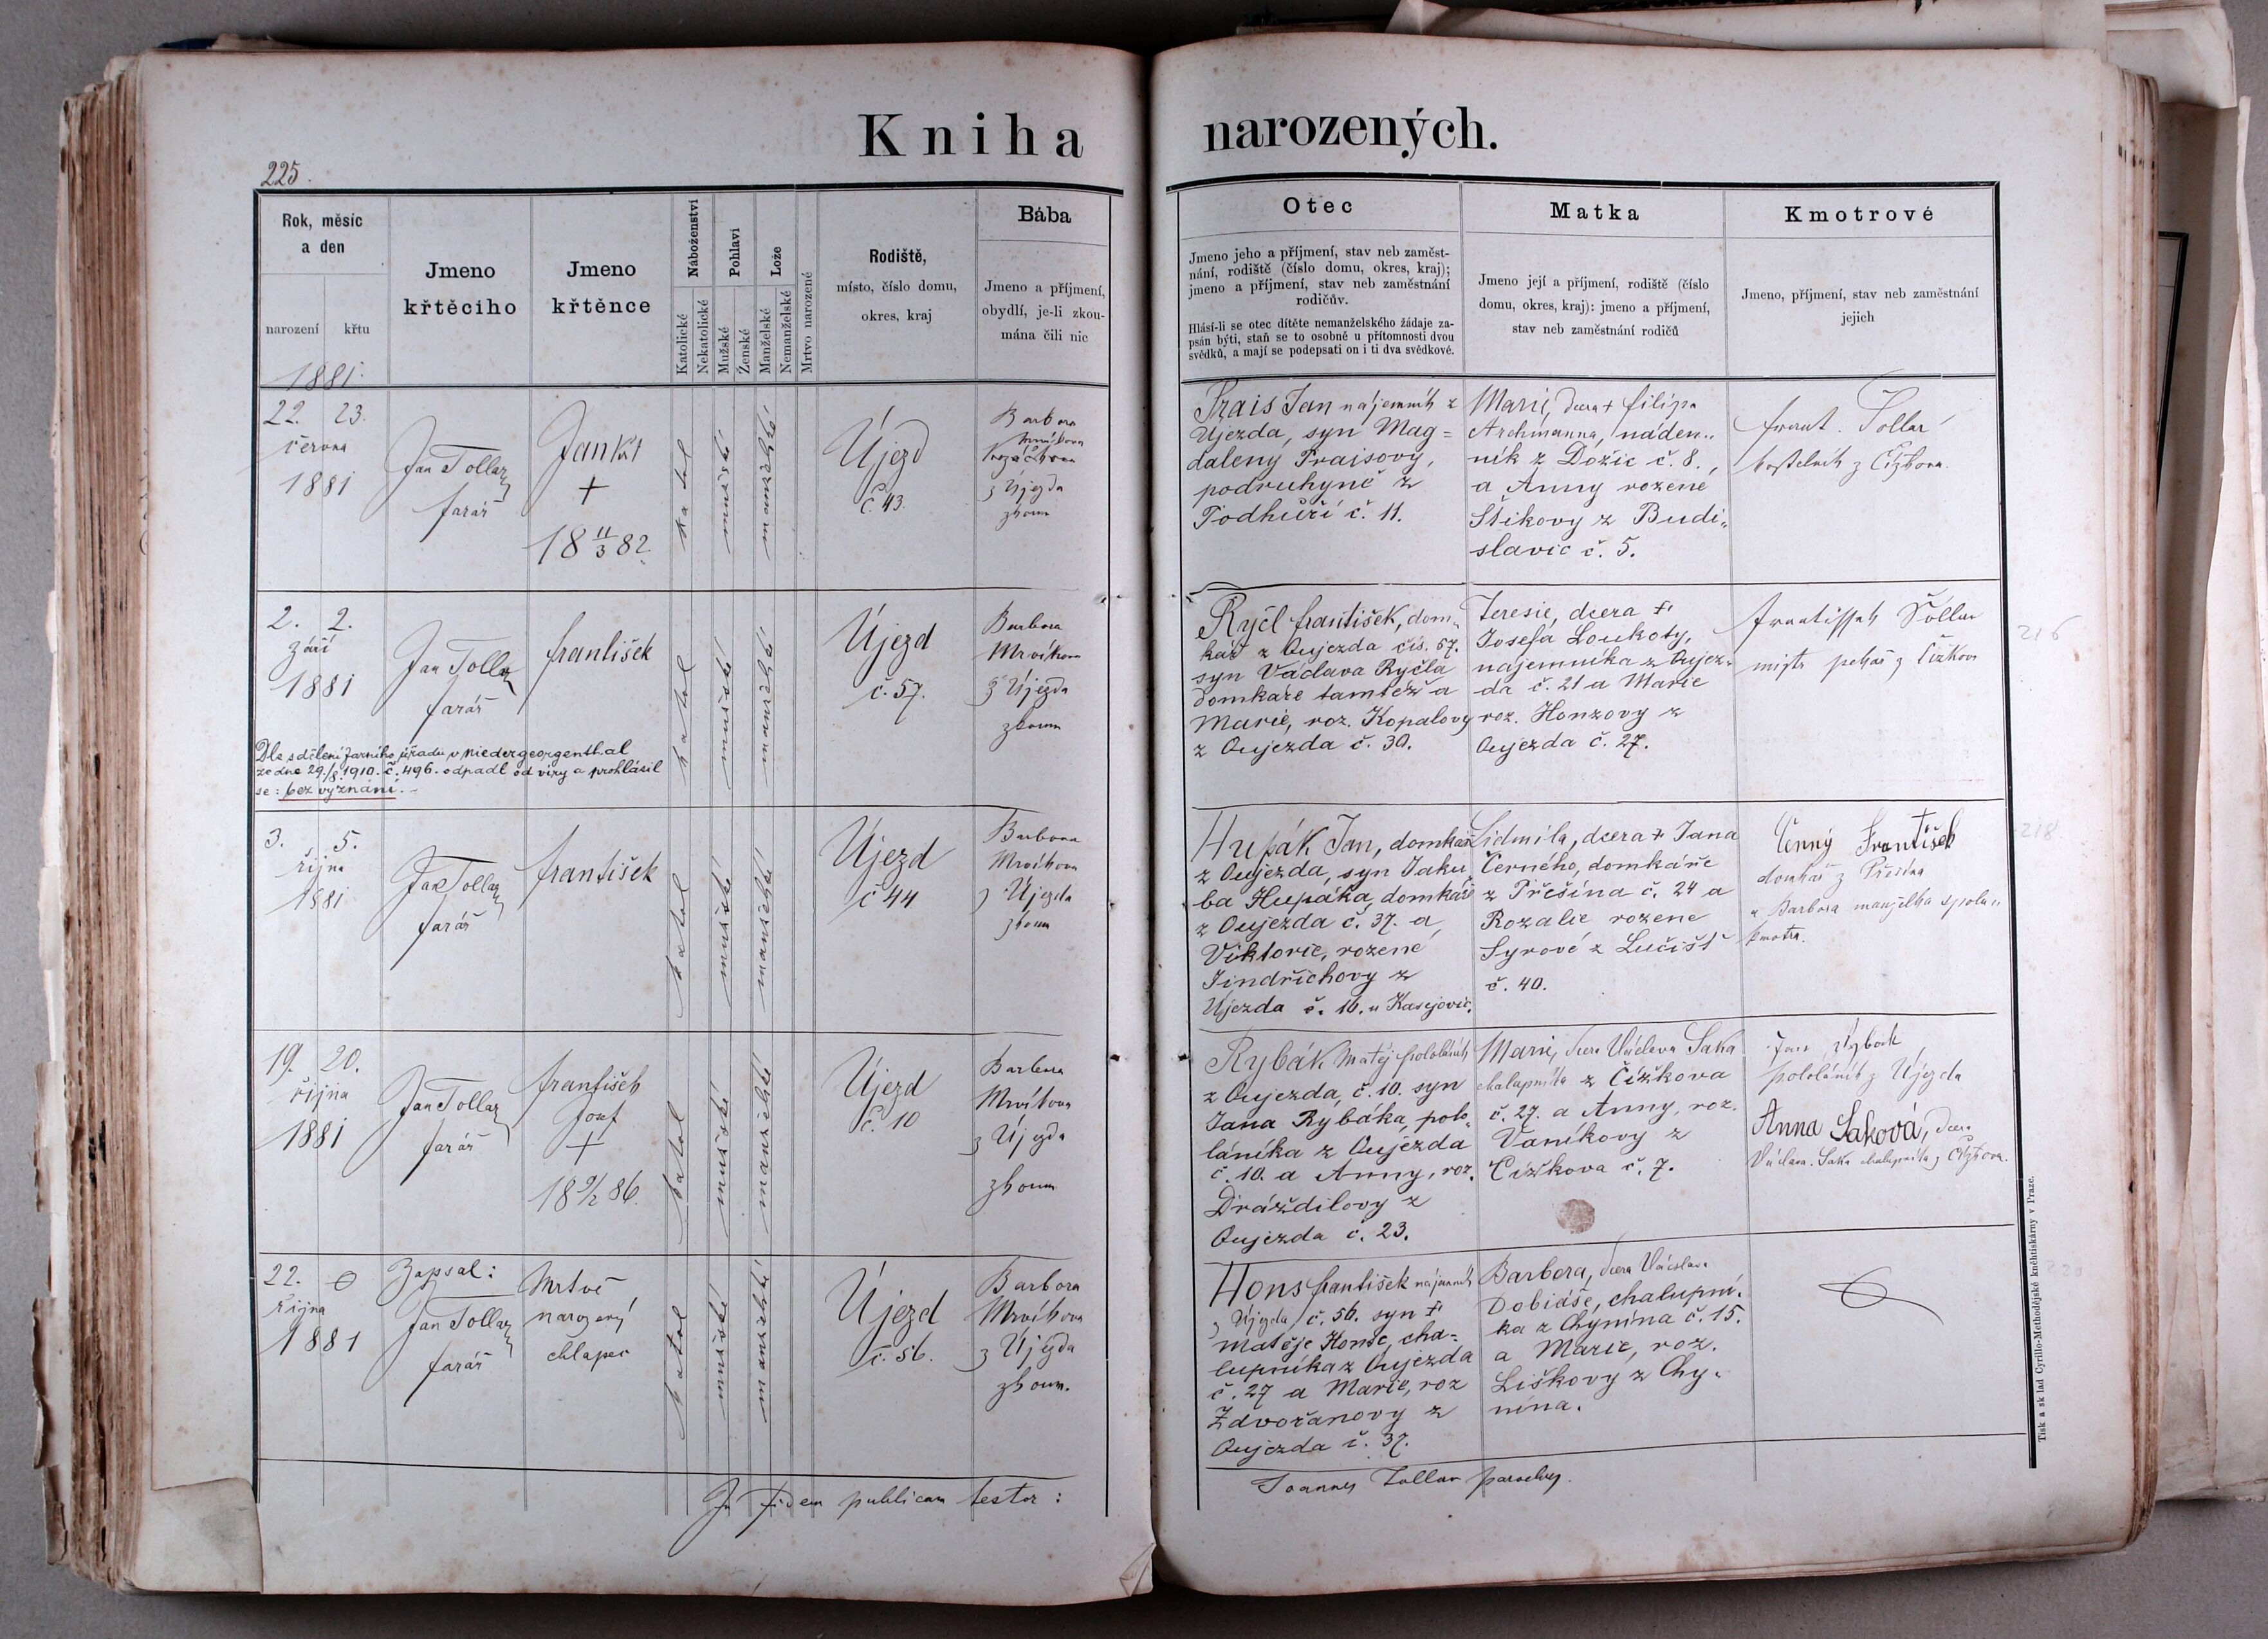 Kniha narozených.
225.
Rok, měsíc
a den
narození
křtu
Jmeno
křtěcího
Jmeno
křtěnce
Náboženství
Katolické
Nekatolické
Pohlaví
Mužské
Ženské
Lože
Manželské
Nemanželské
Mrtvo narozené
Rodiště,
místo, číslo domu,
okres, kraj
Bába
Jmeno a příjmení,
obydlí, je-li zkou-
mána čili nic
Otec
Jmeno jeho a příjmení, stav neb zaměst-
nání, rodiště (číslo domu, okres, kraj);
jmeno a příjmení, stav neb zaměstnání
rodičův.
Hlásí-li se otec dítěte nemanželského žádaje za-
psán býti, staň se to osobně u přítomnosti dvou
svědků, a mají se podepsati on i ti dva svědkové.
Matka
Jmeno její a příjmení, rodiště (číslo
domu, okres, kraj): jmeno a příjmení,
stav neb zaměstnání rodičů
Kmotrové
Jmeno, příjmení, stav neb zaměstnání
jejich
1881.
22. 23.
června
1881
Jan Tollar
farář
Jan
+
18 11/3 82.
katol
mužské
manželské
Újezd
č. 43.
Barbora
z Újezda
zkoum
Prais Jan nájemník z
Újezda, syn Mag=
daleny Praisovy,
podruhyně z
Podhůří č. 11.
Marie, dcera + Filipa
Archmanna, náden„
ník z Dožic č. 8.,
a Anny rozené
Šikovy z Budi„
slavic č. 5.
Frant. Tollar
kostelník z Čížkova.
2. 2.
září
1881
Jan Tollar
farář
František
katol
mužské
manželské
Újezd
č. 57.
Barbora
Mrvíkova
z Újezda
zkoum
Dle sdělení farního úřadu v Niedergeorgenthal
ze dne 29./8. 1910. č. 496. odpadl od víry a prohlásil
se: bez vyznání. –
Ryčl František, dom„
kář z Oujezda čís. 57.
syn Václava Ryčla
domkáře tamtéž a
Marie, roz. Kopalovy
z Oujezda č. 30.
Teresie, dcera +
Josefa Loukoty,
nájemníka z Oujez„
da č. 21 a Marie
roz. Honzovy z
Oujezda č. 27.
Frantissek Tollar
mistr pekař z Čížkova
216
3. 5.
října
1881
Jan Tollar
farář
František
katol
mužské
manželské
Újezd
č 44
Barbora
Mrvíkova
z Újezda
zkoum
Hupák Jan, domkář
z Oujezda, syn Jaku„
ba Hupáka, domkáře
z Oujezda č. 37. a
Viktorie, rozené
Jindřichovy z
Újezda č. 16. u Kasejovic.
Lidmila, dcera + Jana
Černého, domkáře
z Přešína č. 24 a
Rozalie rozené
Syrové z Lučišť
č. 40.
Černý František
domkář z Přešína
a Barbora manželka spolu„
kmotra.
218
19. 20.
října
1881
Jan Tollar
farář
František
Josef
+
18 9/2 86.
katol
mužské
manželské
Újezd
č. 10
Barbora
Mrvíkova
z Újezda
zkoum
Rybák Matěj pololáník
z Oujezda, č. 10. syn
Jana Rybáka, polo„
láníka z Oujezda
č. 10. a Anny, roz.
Dráždilovy z
Oujezda č. 23.
Marie, dcera Václava Saka
chalupníka z Čížkova
č. 27. a Anny, roz.
Vaníkovy z
Čížkova č. 7.
Jan Rybák
pololáník z Újezda
Anna Saková, dcera
Václava Saka chalupníka z Čížkova.
22. 0
října
1881
Zapsal:
Jan Tollar
farář
Mrtvě
narozený
chlapec
katol
mužské
manželské
Újezd
č. 56.
Barbora
Mrvíkova
z Újezda
zkoum.
Hons František nájemník
z Újezda č. 56. syn +
Matěje Honse, cha=
lupníka z Oujezda
č. 27 a Marie, roz
Zdvořanovy z
Oujezda č. 37.
Barbora, dcera Václava
Dobiáše, chalupní„
ka z Chynína č. 15.
a Marie, roz.
Liškovy z Chy„
nína.
In fidem publicam testor:
Joannes Tollar parochus.
Tisk a sklad Cyrillo-Methodějské knihtiskárny v Praze.